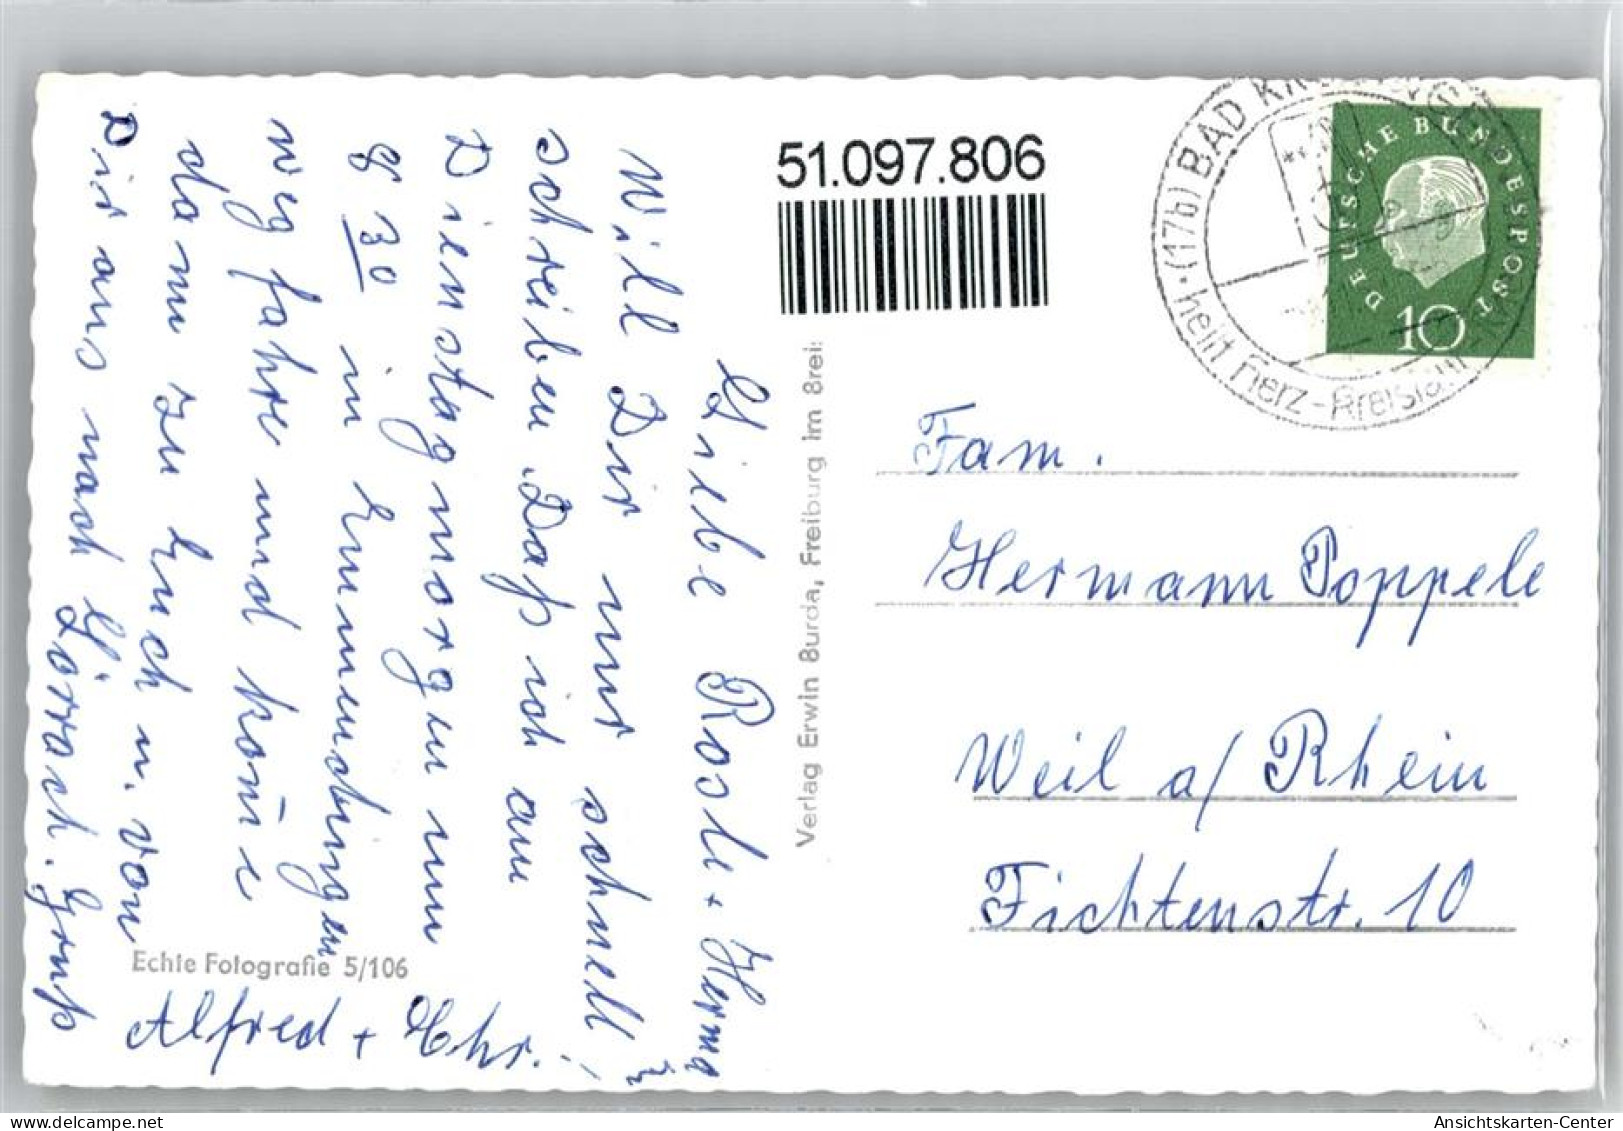 Liebe Rosle + Herma
Will Dir nur schnell
schreiben Daß ich am
Dienstag morgen um
8 30 in Emmendingen
weg fahre und kom̄e
dann zu Euch u. von
Dir aus nach Lörrach. Gruß
Alfred + Chr.
Echte Fotografie 5/106
Verlag Erwin Burda, Freiburg im Brei
51.097.806
(17b) BAD
heilt Herz-Kreislauf
DEUTSCHE BUNDESPOST
10
Fam.
Hermann Poppele
Weil a/ Rhein
Fichtenstr. 10
Ansichtskarten-Center